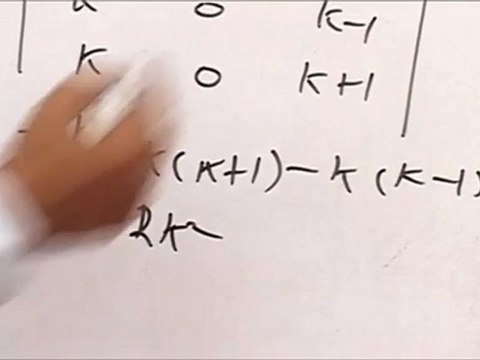 0 k-1
k 0 k+1
k(k+1)-k(k-1)
2k